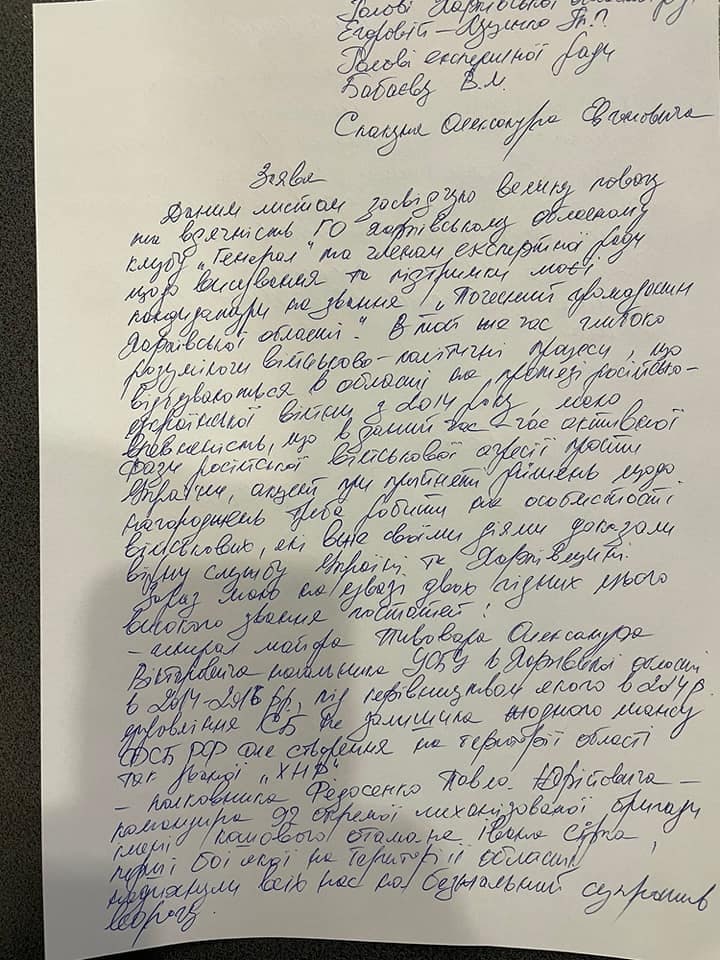 Голові Харківської обласної
Егоровій-Луценко Т.П.
Голові експертної ради
Бабаєву В.М.
Спаскуна Олександра Євгеновича
Заява
Даним листом засвідчую велику повагу
та вдячність ГО Харківському обласному
клубу „Генерал" та членам експертної ради
щодо висування та підтримки моєї
кандидатури на звання „Почесний громадянин
Харківської області". В той же час глибоко
розуміючи військово-політичні процеси, що
відбуваються в області на протязі російсько-
української війни з 2014 року, маю
впевненість, що в даний час - час активної
фази російської військової агресії проти
України, акцент при прийнятті рішень щодо
нагороджень треба робити на особистості
військових, які вже своїми діями доказали
вірну службу Україні та Харківщині.
Зараз маю на увазі двох гідних цього
високого звання постатей:
- генерал майора Пивовара Олександра
Вікторовича начальника УСБУ в Харківській області
в 2014-2016 рр, під керівництвом якого в 2014 р.
управління СБ не залишила жодного шансу
ФСБ РФ для створення на території області
так званої „ХНР"
- полковника Федосенко Павла Юрійовича -
командира 92 окремої механізованої бригади
імені кошового отамана Івана Сірка,
перші бої якої на території області
надихнули всіх нас на безжальний супротив
ворогу.